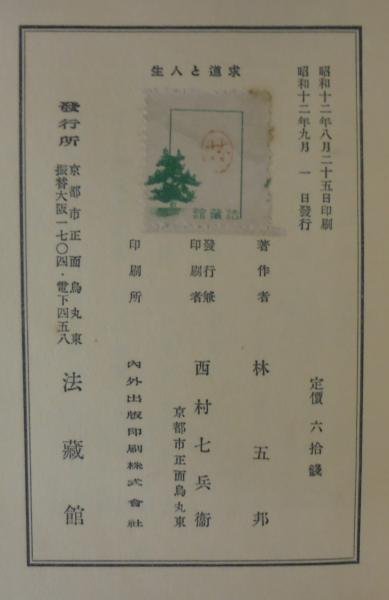 昭和十二年八月二十五日印刷
昭和十二年九月一日發行
定價六拾錢
求道と人生
林
法藏館
著作者 林五邦
發行兼印刷者 西村七兵衞
京都市正面烏丸東
印刷所 內外出版印刷株式會社
發行所 京都市正面烏丸東
振替大阪一七〇四・電下四五八
法藏館